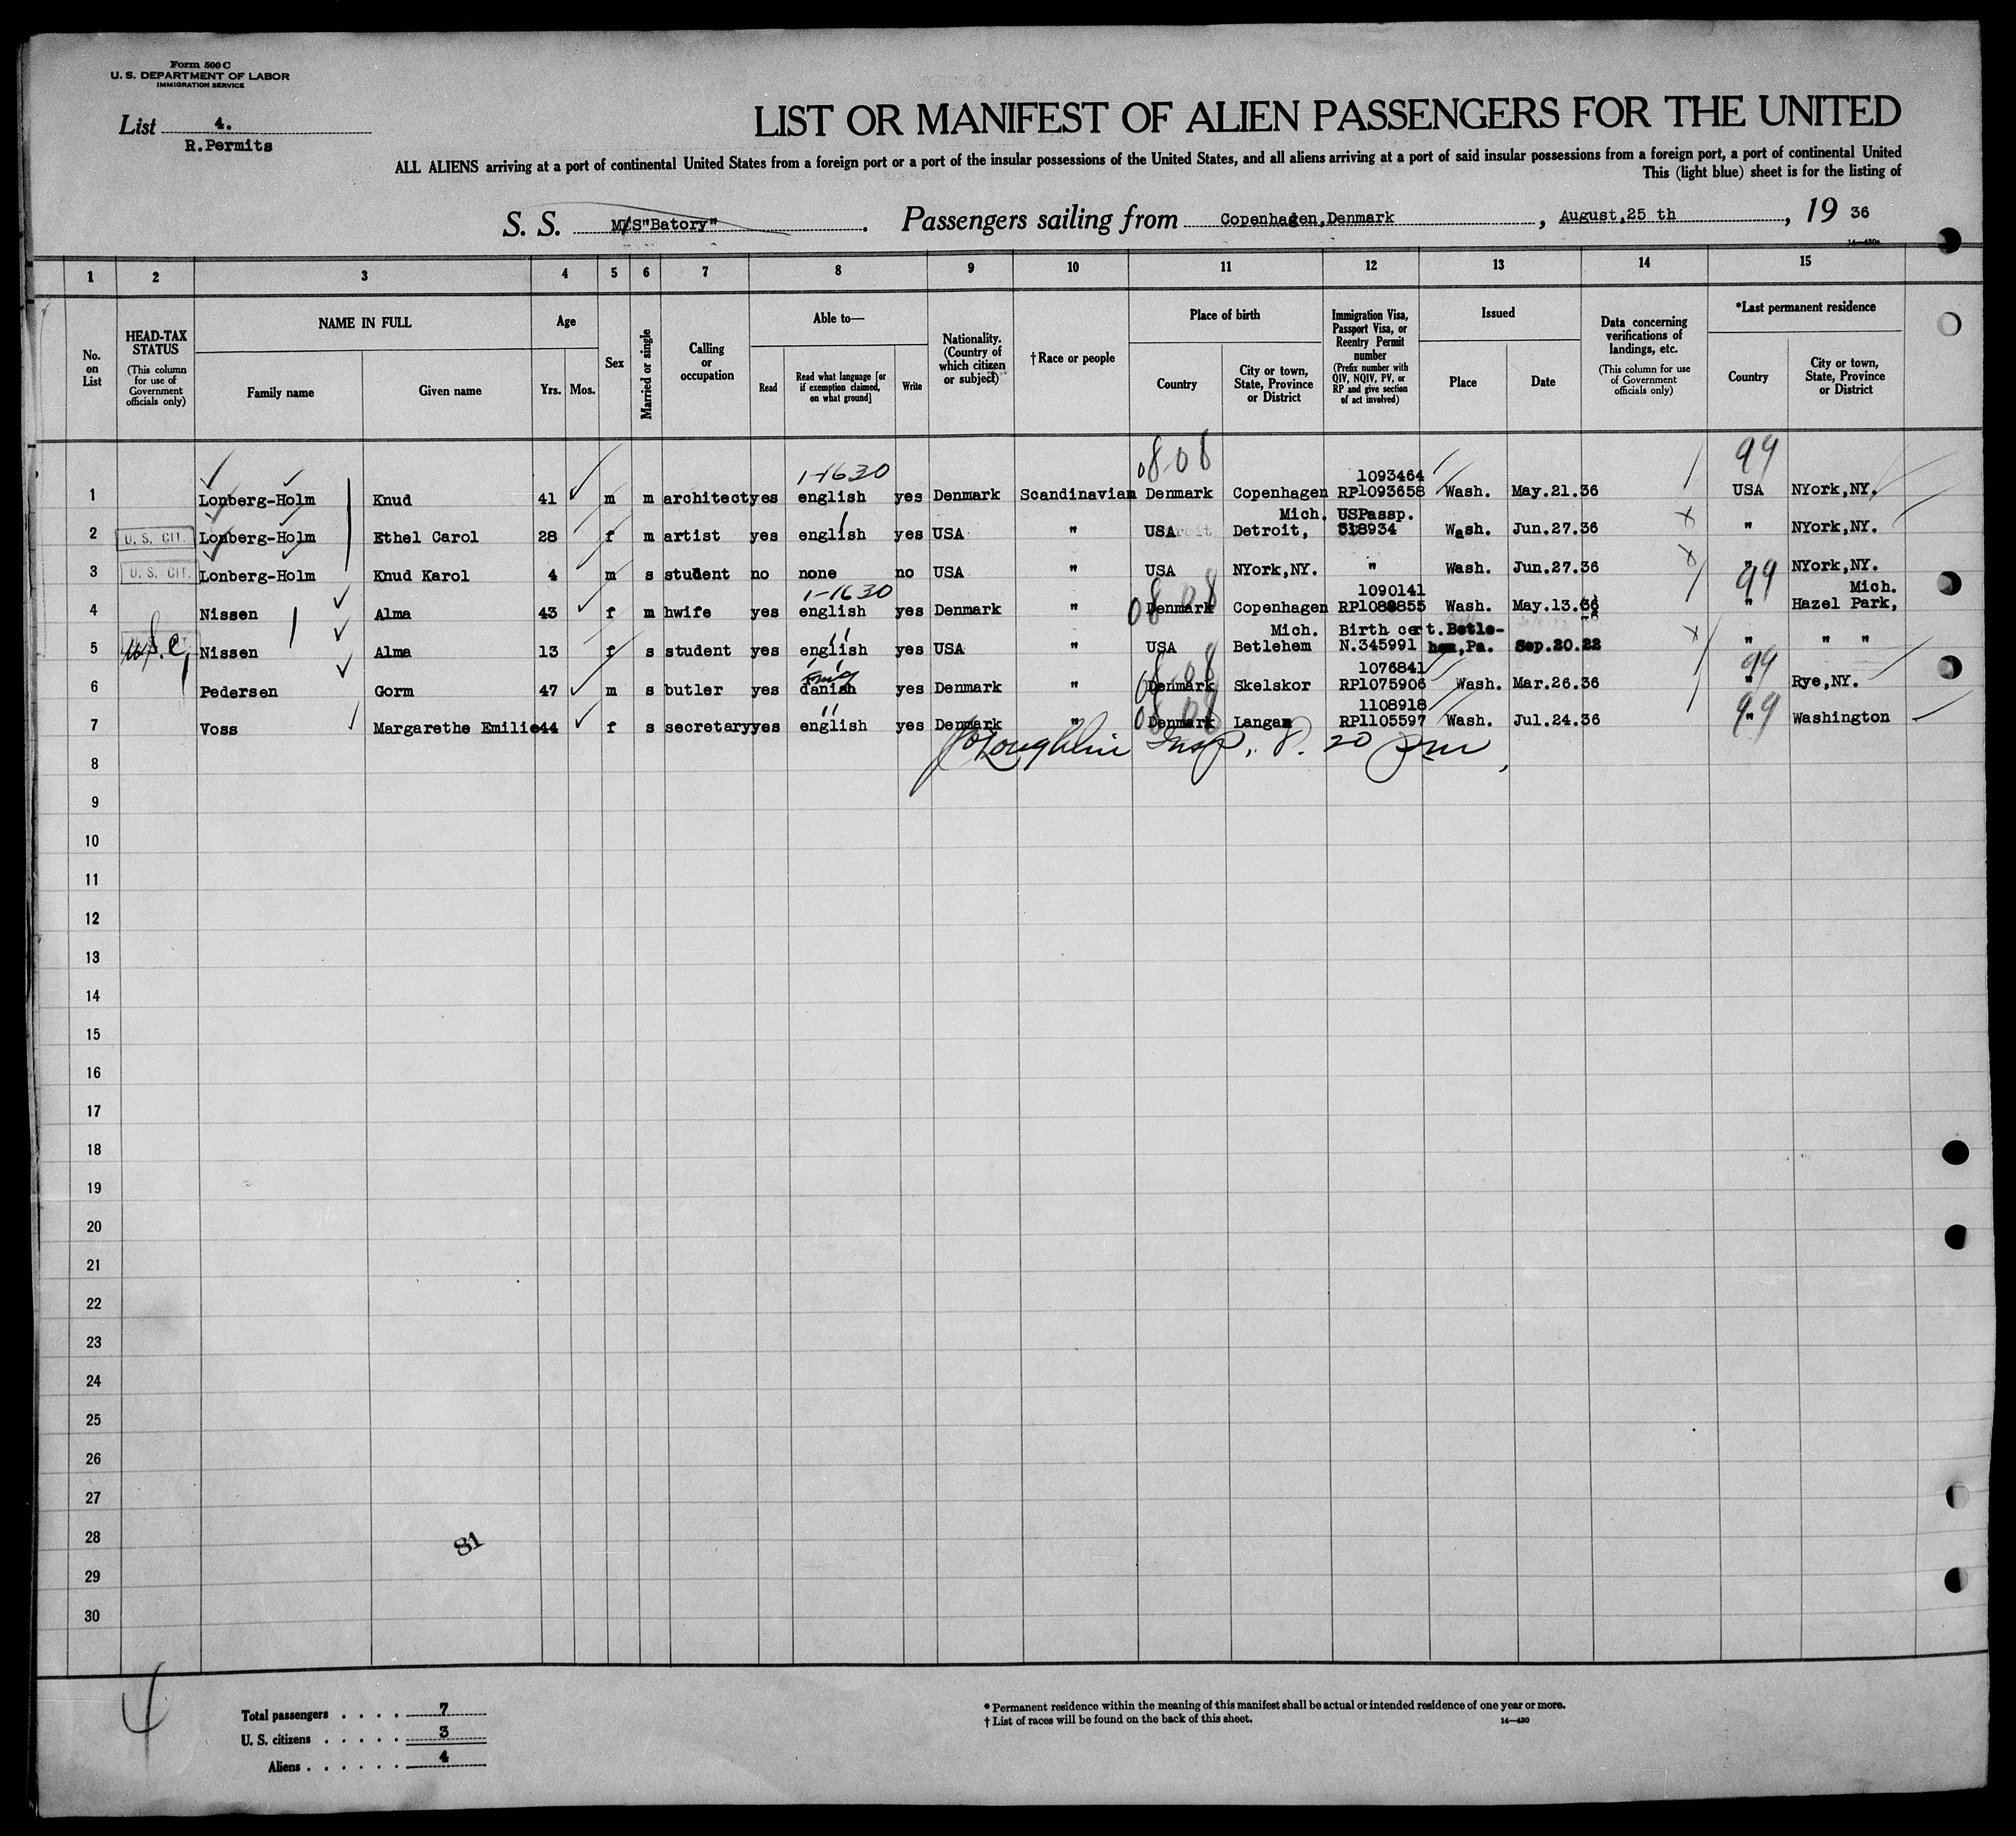 Form 500 C
U. S. DEPARTMENT OF LABOR
IMMIGRATION SERVICE
List 4.
R.Permits
LIST OR MANIFEST OF ALIEN PASSENGERS FOR THE UNITED
ALL ALIENS arriving at a port of continental United States from a foreign port or a port of the insular possessions of the United States, and all aliens arriving at a port of said insular possessions from a foreign port, a port of continental United
This (light blue) sheet is for the listing of
S. S. M/S"Batory". Passengers sailing from Copenhagen,Denmark, August,25 th, 19 36
14—430a
1 2 3 4 5 6 7 8 9 10 11 12 13 14 15
No. on List
HEAD-TAX STATUS
(This column for use of Government officials only)
NAME IN FULL
Family name
Given name
Age
Yrs. Mos.
Sex
Married or single
Calling or occupation
Able to—
Read
Read what language [or if exemption claimed, on what ground]
Write
Nationality. (Country of which citizen or subject)
†Race or people
Place of birth
Country
City or town, State, Province or District
Immigration Visa, Passport Visa, or Reentry Permit number
(Prefix number with QIV, NQIV, PV, or RP and give section of act involved)
Issued
Place
Date
Data concerning verifications of landings, etc.
(This column for use of Government officials only)
*Last permanent residence
Country
City or town, State, Province or District
1-1630 0808 1093464 99
1 Lonberg-Holm Knud 41 m m architect yes english yes Denmark Scandinavian Denmark Copenhagen RP1093658 Wash. May.21.36 USA NYork,NY.
Mich. USPassp.
2 U. S. CIT. Lonberg-Holm Ethel Carol 28 f m artist yes english yes USA " USA Detroit, 318934 Wash. Jun.27.36 " NYork,NY.
3 U. S. CIT. Lonberg-Holm Knud Karol 4 m s student no none no USA " USA NYork,NY. " Wash. Jun.27.36 " NYork,NY.
1-1630 0808 1090141 99 Mich.
4 Nissen Alma 43 f m hwife yes english yes Denmark " Denmark Copenhagen RP1088855 Wash. May.13.36 " Hazel Park,
Mich. Birth cert.Betle-
5 U.S.C. Nissen Alma 13 f s student yes english yes USA " USA Betlehem N.345991 hem,Pa. Sep.20.22 " " "
Eng 0808 1076841 99
6 Pedersen Gorm 47 m s butler yes danish yes Denmark " Denmark Skelskor RP1075906 Wash. Mar.26.36 " Rye,NY.
0808 1108918 99
7 Voss Margarethe Emilie 44 f s secretary yes english yes Denmark " Denmark Langaa RP1105597 Wash. Jul.24.36 " Washington
Insp. 8.20 pm
8
9
10
11
12
13
14
15
16
17
18
19
20
21
22
23
24
25
26
27
28
29
30
81
4
Total passengers . . . . 7
U. S. citizens . . . . . 3
Aliens . . . . . . 4
* Permanent residence within the meaning of this manifest shall be actual or intended residence of one year or more.
† List of races will be found on the back of this sheet.
14—430